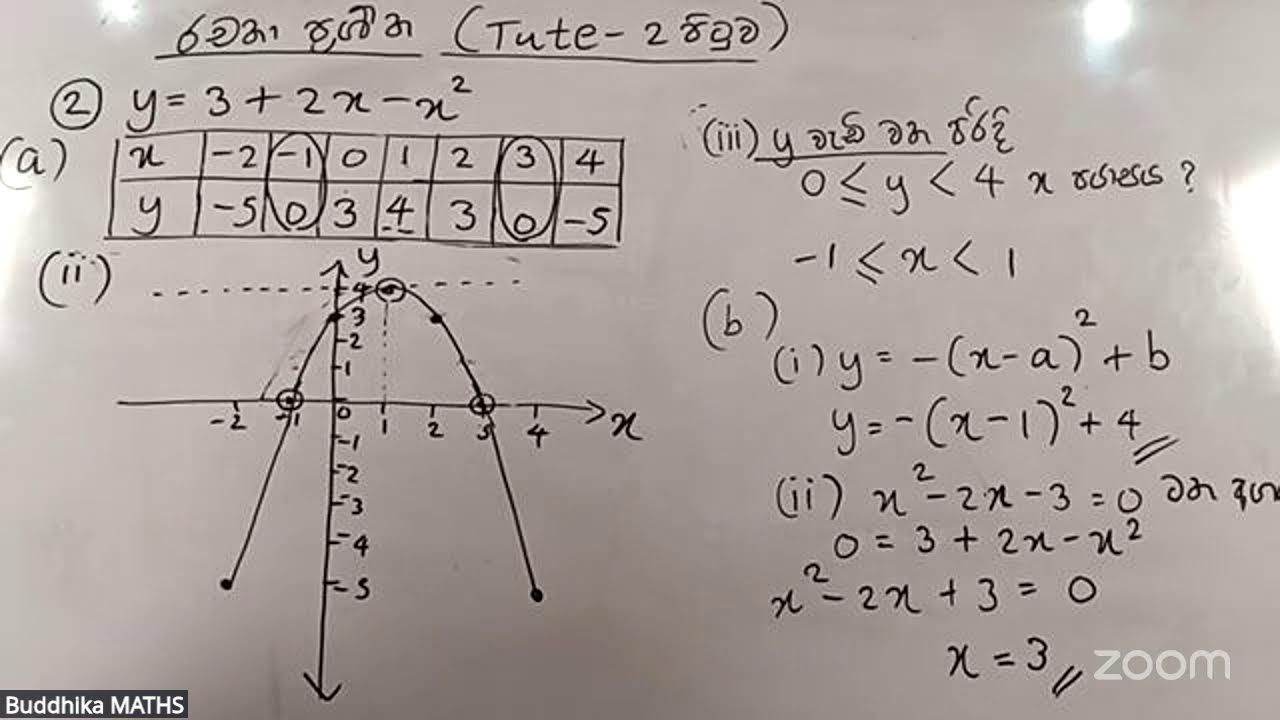 රචනා ප්‍රශ්න (Tute - 2 පිටුව)
② y = 3 + 2x - x²
(a) x -2 -1 0 1 2 3 4
y -5 0 3 4 3 0 -5
(ii)
y
4
3
2
1
-2 -1 0 1 2 3 4 x
-1
-2
-3
-4
-5
(iii) y වැඩි වන පරිදි
0 ≤ y < 4 x පරාසය ?
-1 ≤ x < 1
(b)
(i) y = -(x-a)² + b
y = -(x-1)² + 4
(ii) x² - 2x - 3 = 0 වන
0 = 3 + 2x - x²
x² - 2x + 3 = 0
x = 3
zoom
Buddhika MATHS